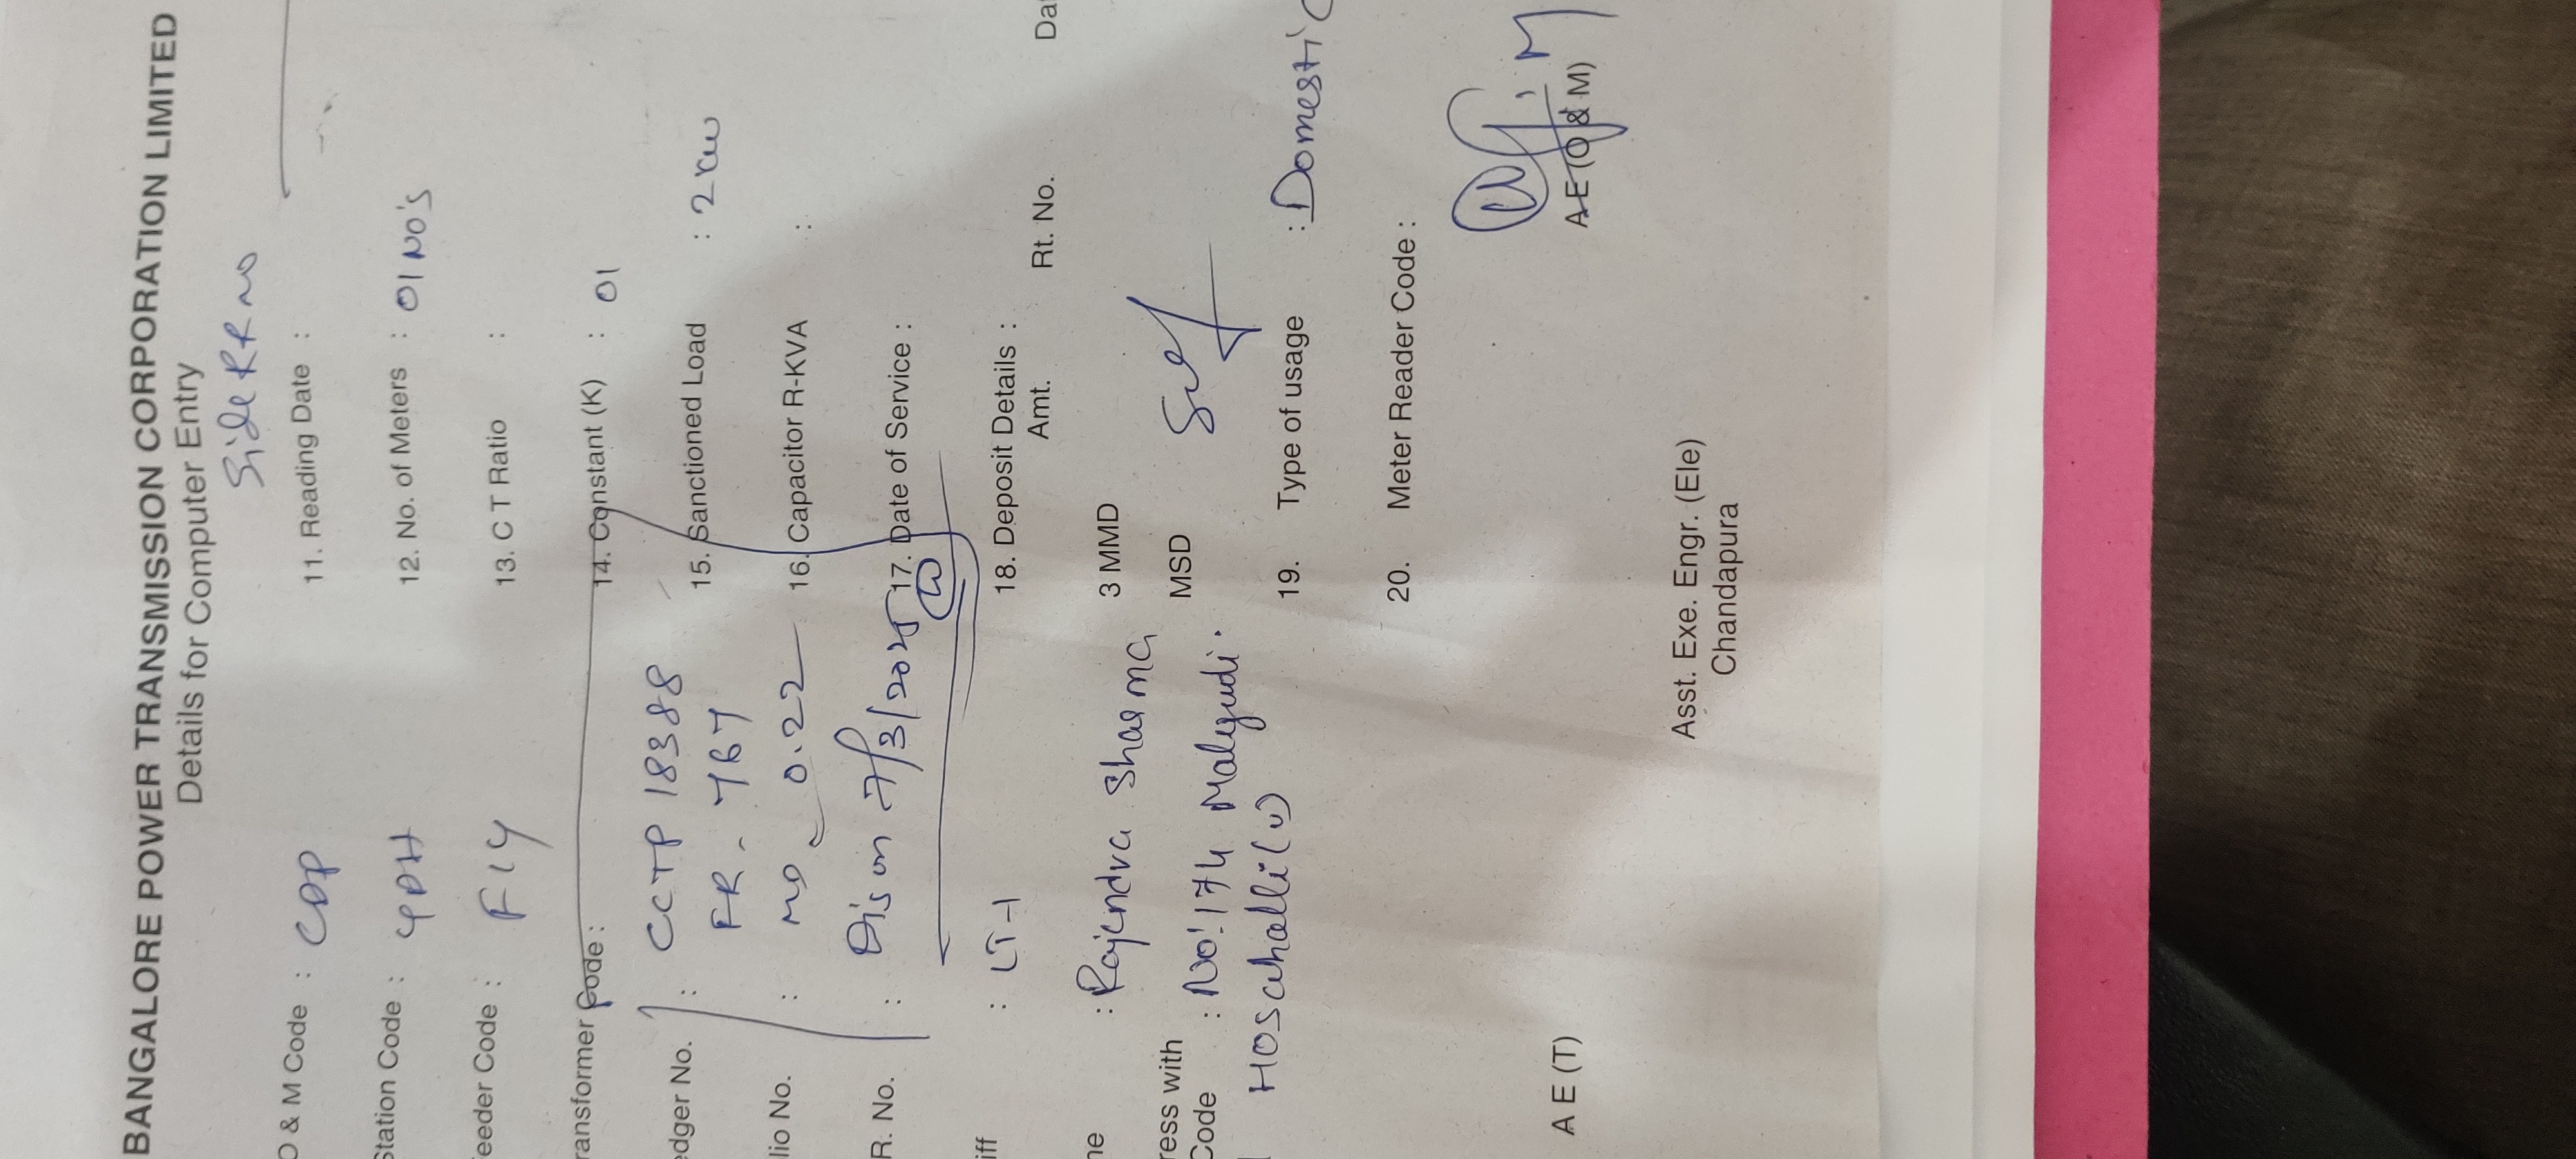 BANGALORE POWER TRANSMISSION CORPORATION LIMITED
Details for Computer Entry
Side RR no
O & M Code : CDP
Station Code :
eeder Code : F14
ransformer Code :
edger No. : CCTP 18388
FR - 767
lio No. : 0.22
R. No. : Dis on 7/3/2025
iff : LT-1
ne : Rajendra Sharma
ress with
Code : No! 174 Malgudi.
Hosahalli (v)
11. Reading Date :
12. No. of Meters : 01 No's
13. C T Ratio :
14. Constant (K) : 01
15. Sanctioned Load : 2 KW
16. Capacitor R-KVA :
17. Date of Service :
18. Deposit Details :
Amt. Rt. No. Dat
3 MMD
MSD
19. Type of usage : Domestic
20. Meter Reader Code :
A E (T)
A E (O & M)
Asst. Exe. Engr. (Ele)
Chandapura